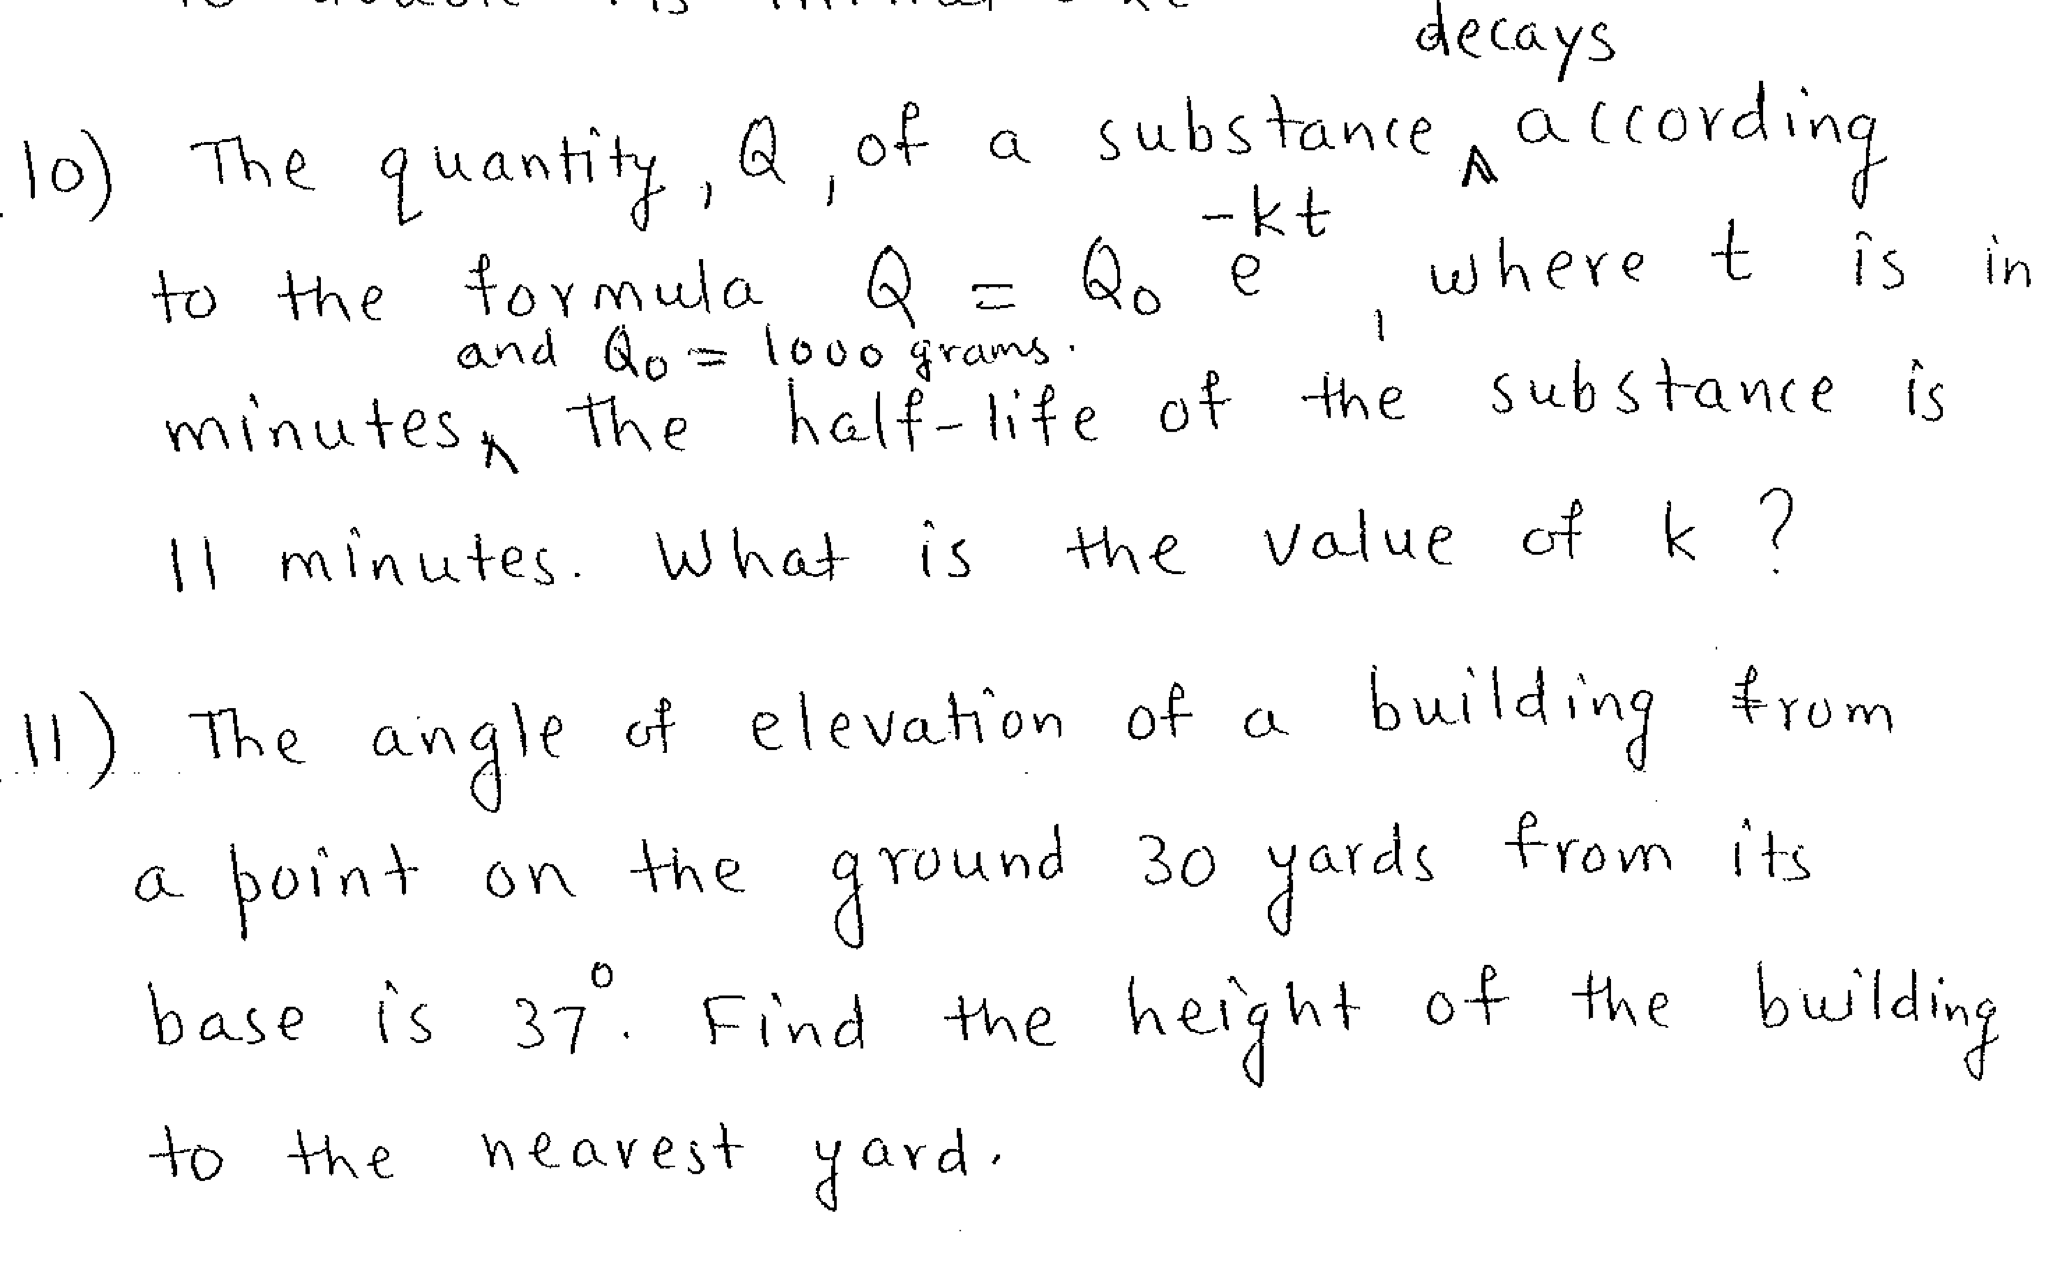 decays
10) The quantity, Q, of a substance ^ according
to the formula Q = Q₀ e^-kt, where t is in
and Q₀ = 1000 grams.
minutes ^ The half-life of the substance is
11 minutes. What is the value of k ?
11) The angle of elevation of a building from
a point on the ground 30 yards from its
base is 37°. Find the height of the building
to the nearest yard.